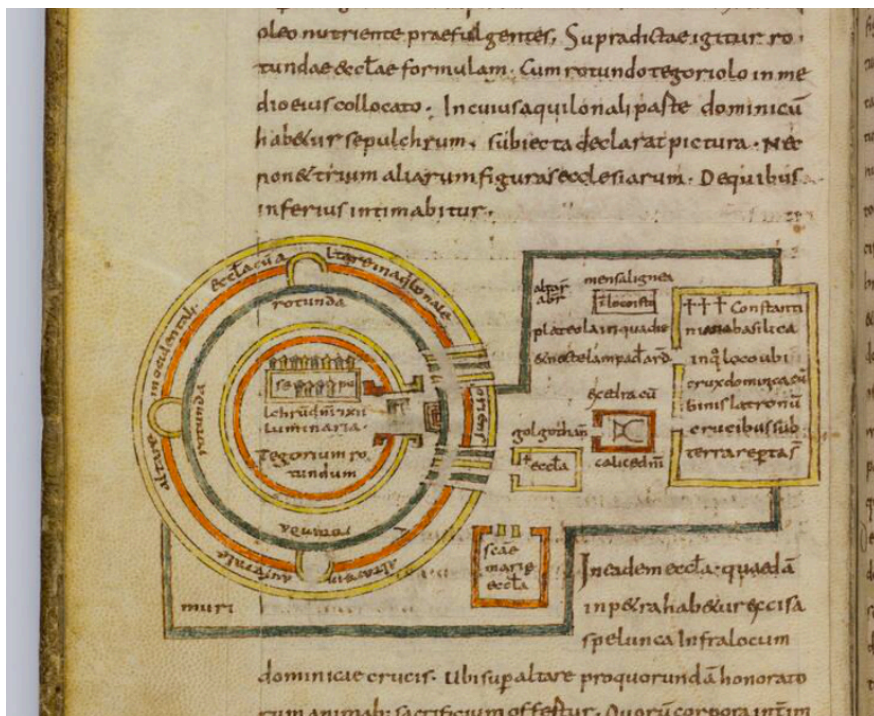 oleo nutriente praefulgentes. Supradictae igitur ro
tundae & eccłae formulam. Cum rotundo tegoriolo in me
dio eius collocato. In cuius aquilonali parte dominicū
hab&ur sepulchrum. subiecta declarat pictura. Nec
non & trium aliarum figuras ecclesiarum. De quibus
inferius intimabitur.
altare in occidentali
eccła cū a
ltare in aq̇lonale
rotunda
rotunda
rotunda
altare in australe
oriens
se pul
chrū dm̄i xii
luminaria
Tegorium ro
tundum
mensa lignea
altar
abr
plateola in qua die
& nocte lampad ard
exedra cū
calice dm̄i
golgothan̄
eccła
scae
marie
eccła
††† Constanti
niana basilica
in q̇ loco ubi
crux dominica cū
binis latronū
crucibus sub
terra reptā
muri
In eadem eccła quaedā
in petra hab&ur excisa
spelunca Infra locum
dominicae crucis. Ubi sup altare pro quorundā honorato
rum animab; sacrificium offertur. Quorū corpora intim